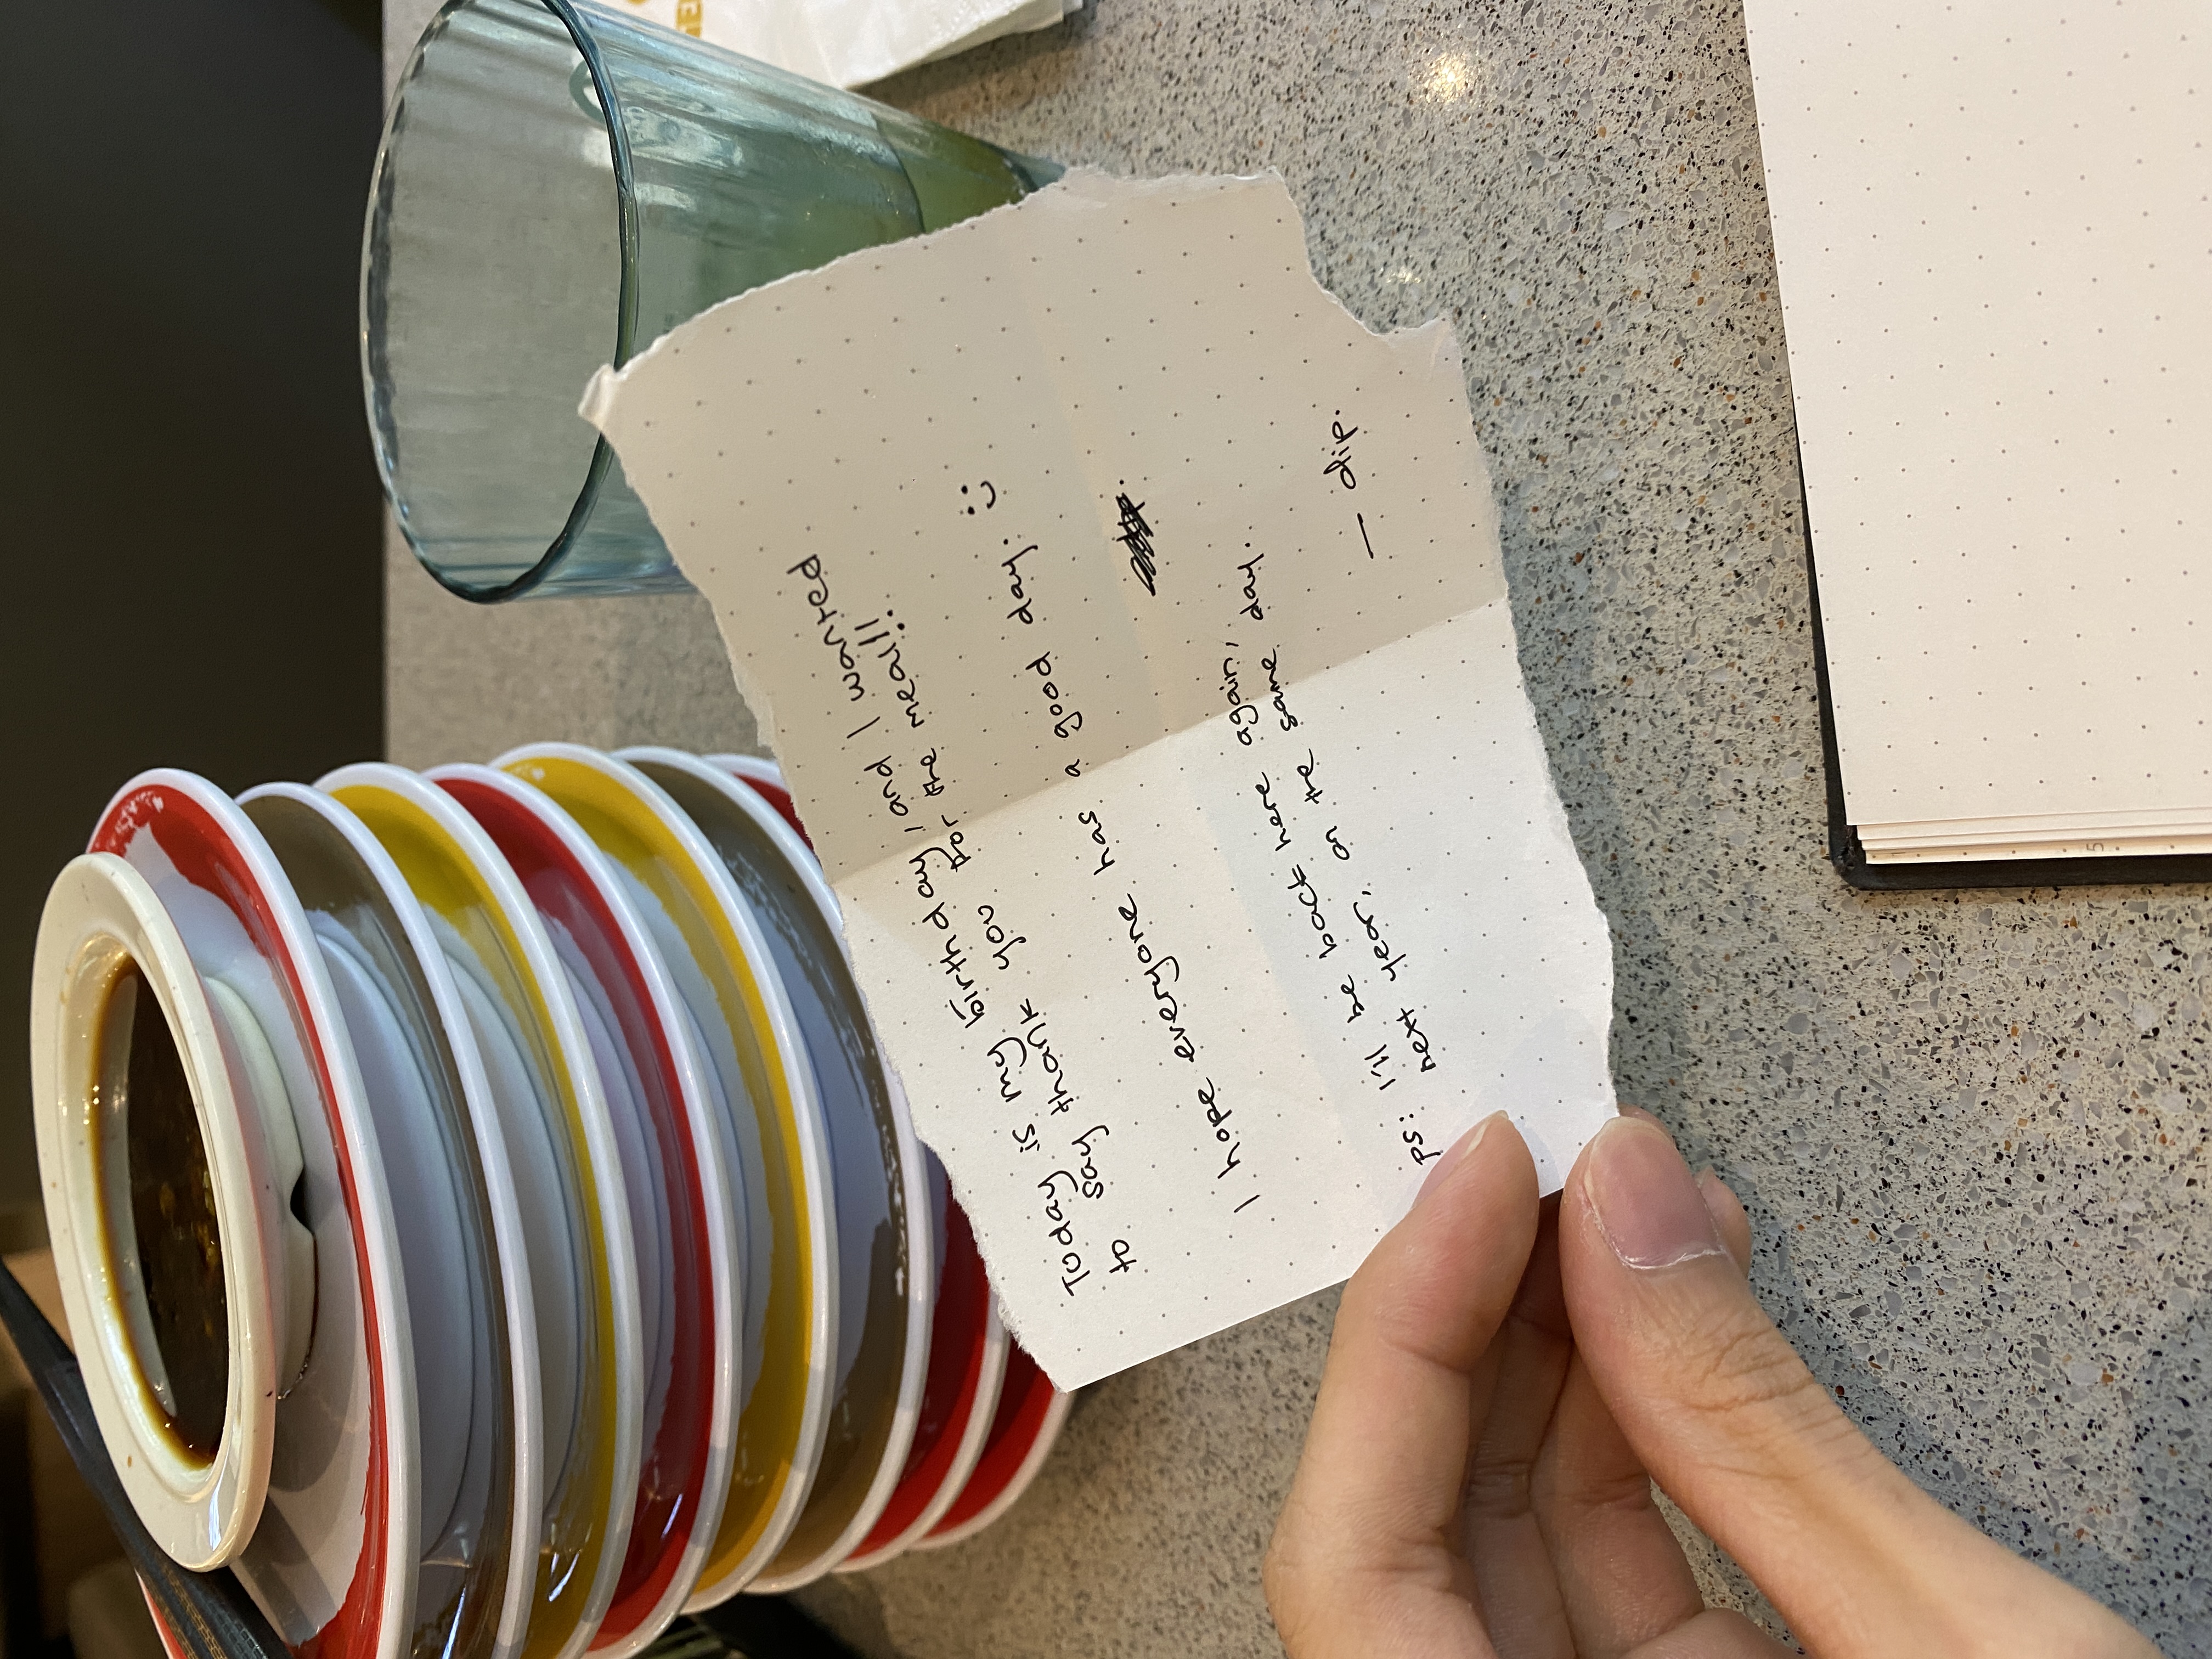 Today is my birthday, and I wanted
to say thank you for the meal!!
I hope everyone has a good day. :)
ps: I'll be back here again,
next year, on the same day.
— dip.
5